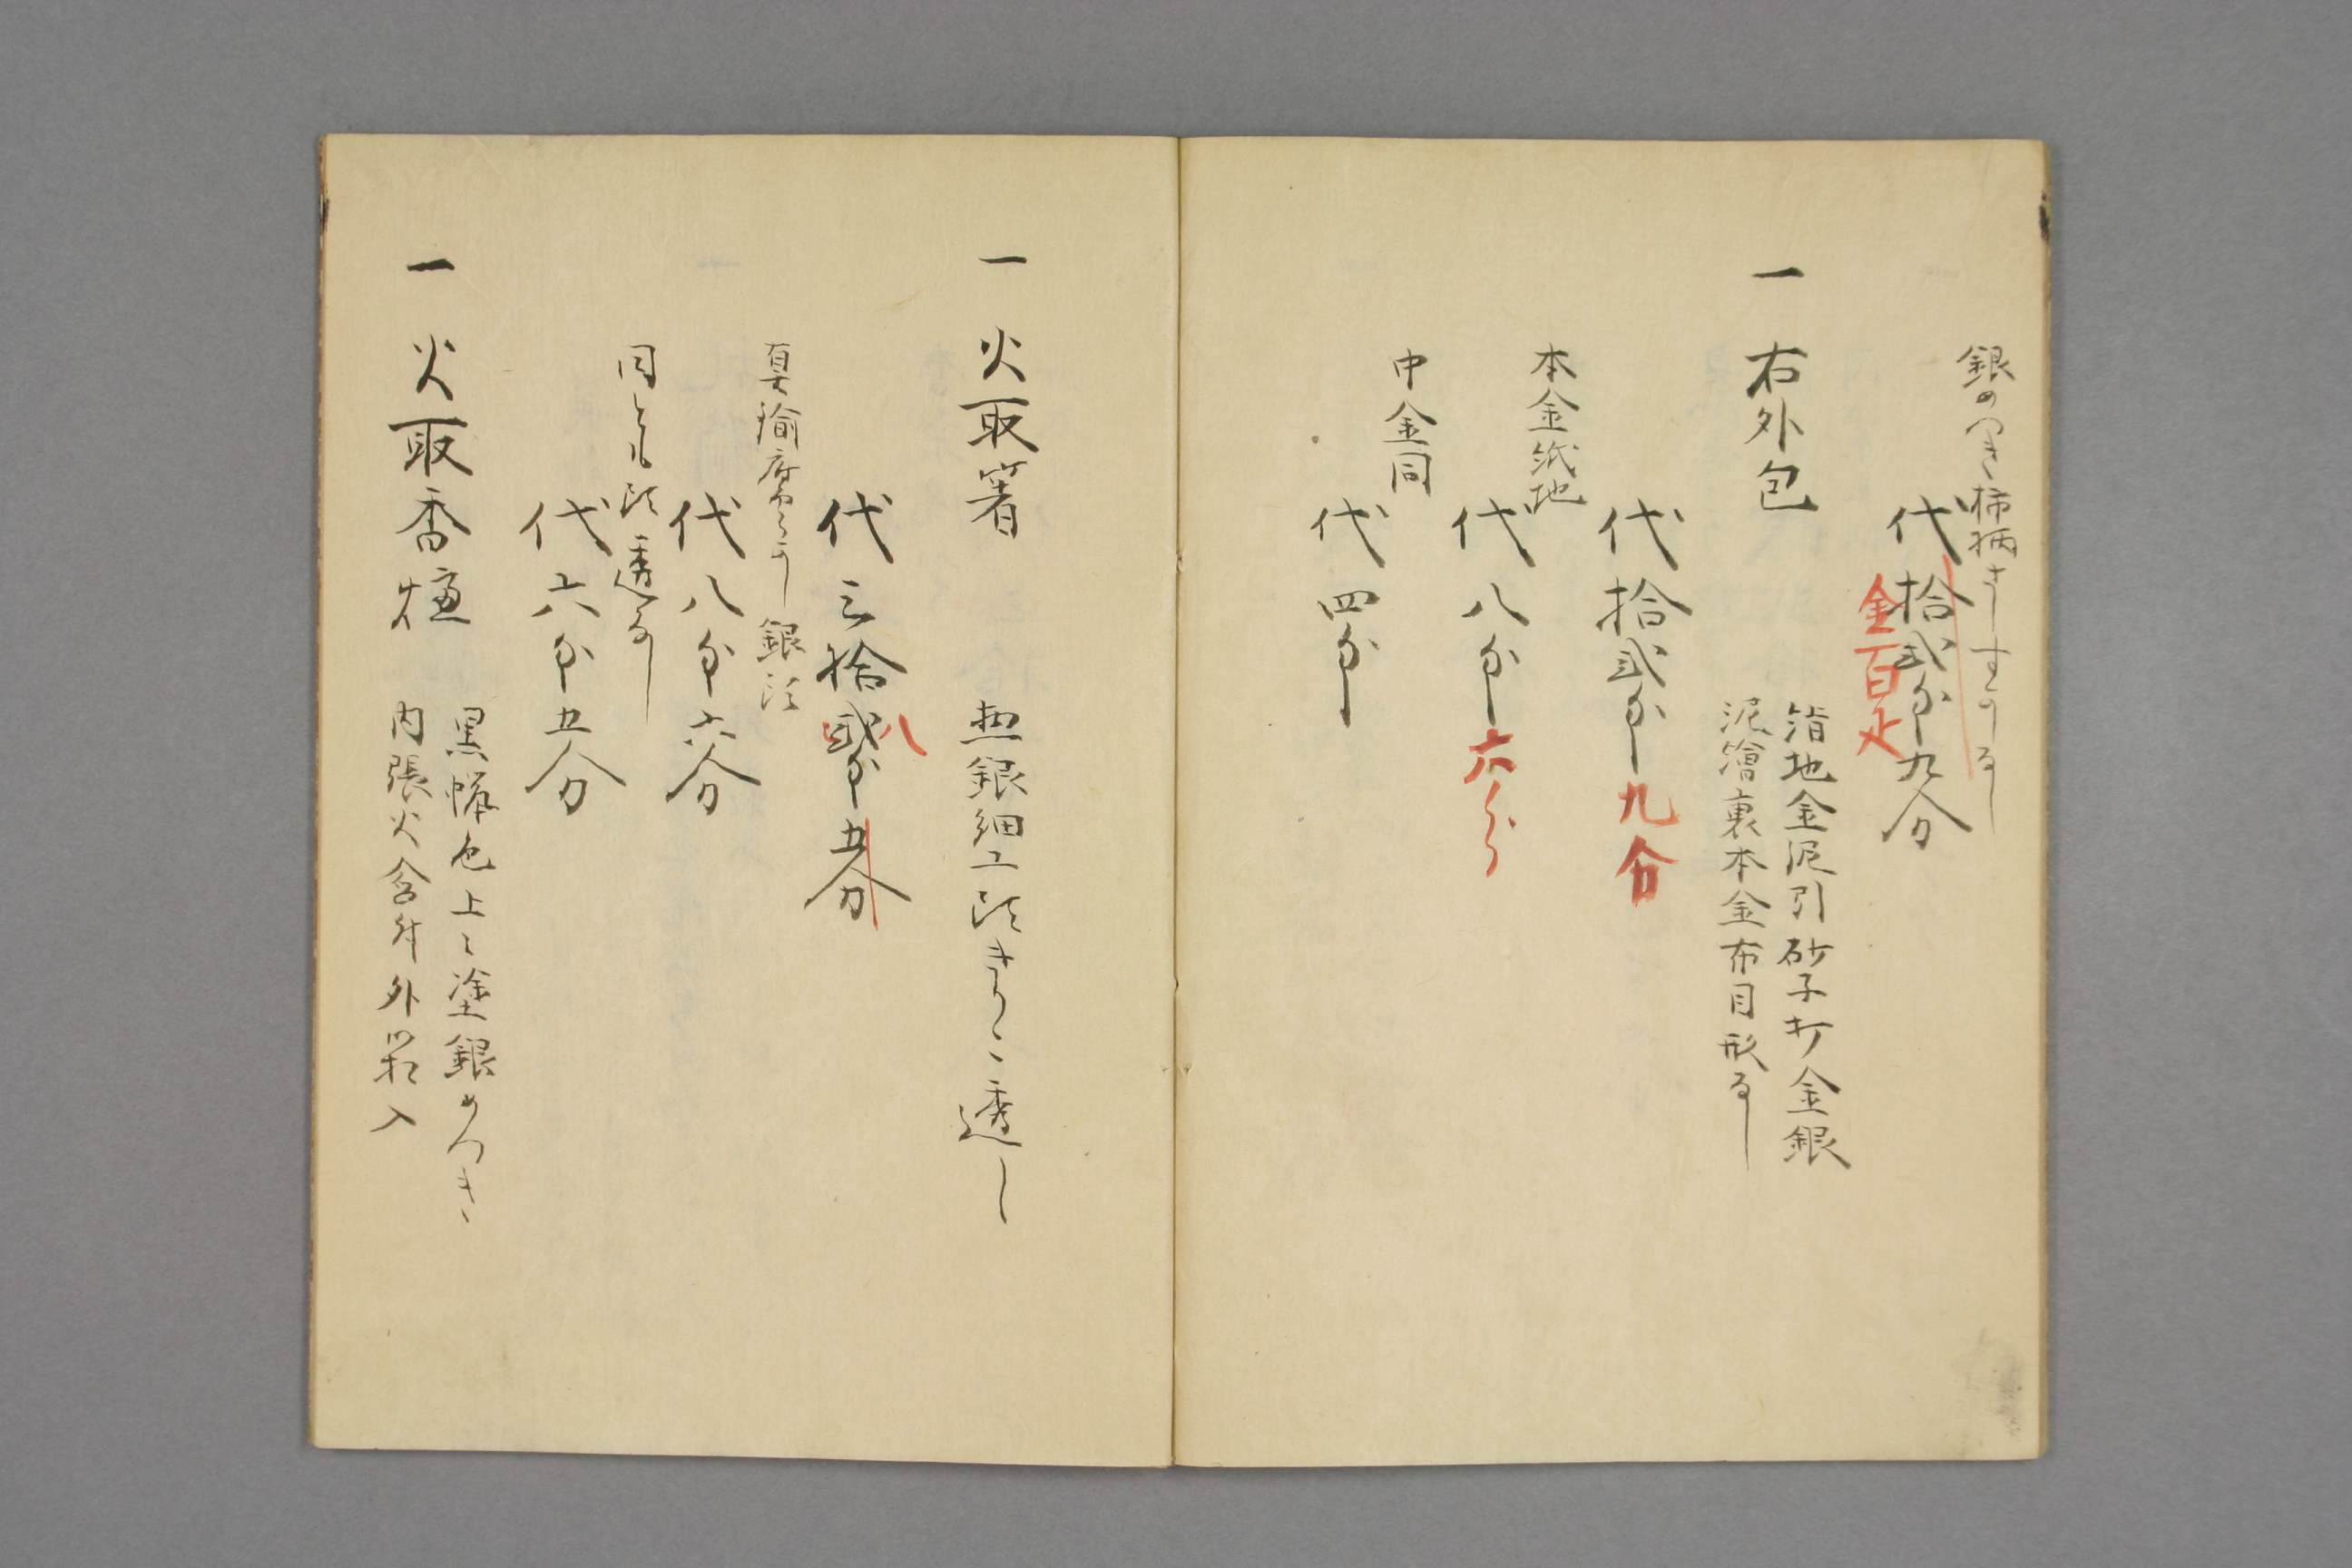 銀めつき柿柄さしすかし
代拾弐匁九分
金百疋
一 右外包
絹地金泥引砂子打金銀
泥繪裏本金布目形なし
代拾弐匁九分
本金紙地
代八匁六分
中金同
代四匁
一 火取箸
銀細工頭きりこ透し
代三拾弐匁五分
八
真鍮 銀頭
代八匁六分
同とも頭透なし
代六匁五分
一 火取香
黒蝋色上々塗銀めつき
内張火合付外箱入